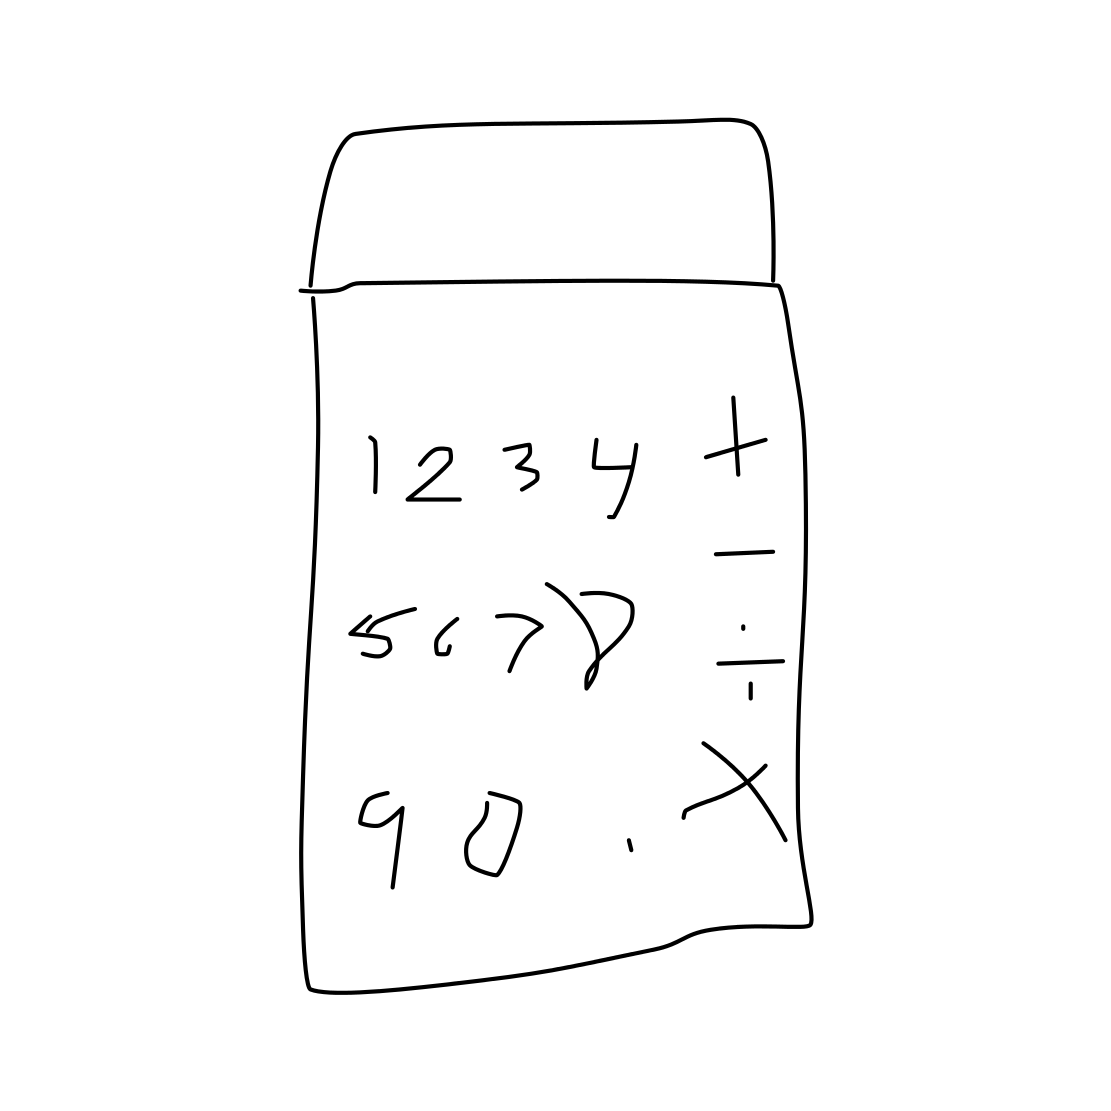 1 2 3 4 +
−
5 6 7 8
÷
9 0 . ×